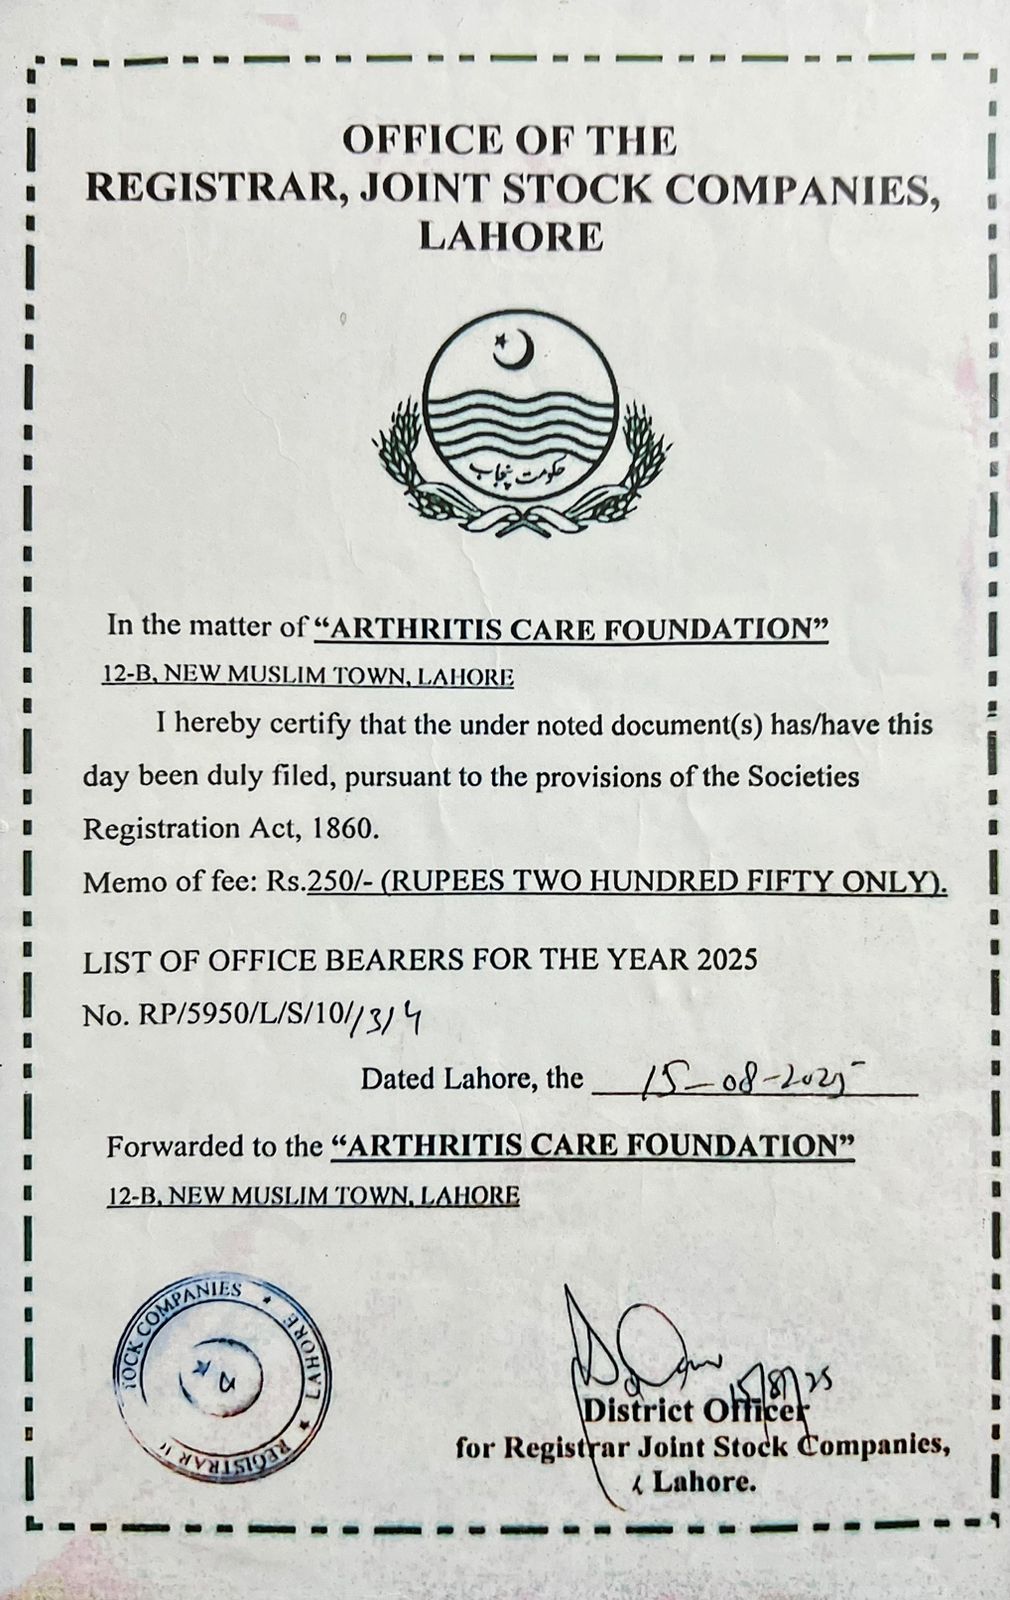 OFFICE OF THE
REGISTRAR, JOINT STOCK COMPANIES,
LAHORE
حکومت پنجاب
In the matter of “ARTHRITIS CARE FOUNDATION”
12-B, NEW MUSLIM TOWN, LAHORE
I hereby certify that the under noted document(s) has/have this
day been duly filed, pursuant to the provisions of the Societies
Registration Act, 1860.
Memo of fee: Rs.250/- (RUPEES TWO HUNDRED FIFTY ONLY).
LIST OF OFFICE BEARERS FOR THE YEAR 2025
No. RP/5950/L/S/10/1314
Dated Lahore, the 15-08-2025
Forwarded to the “ARTHRITIS CARE FOUNDATION”
12-B, NEW MUSLIM TOWN, LAHORE
REGISTRAR TOCK COMPANIES * LAHORE *
15/8/25
District Officer
for Registrar Joint Stock Companies,
Lahore.